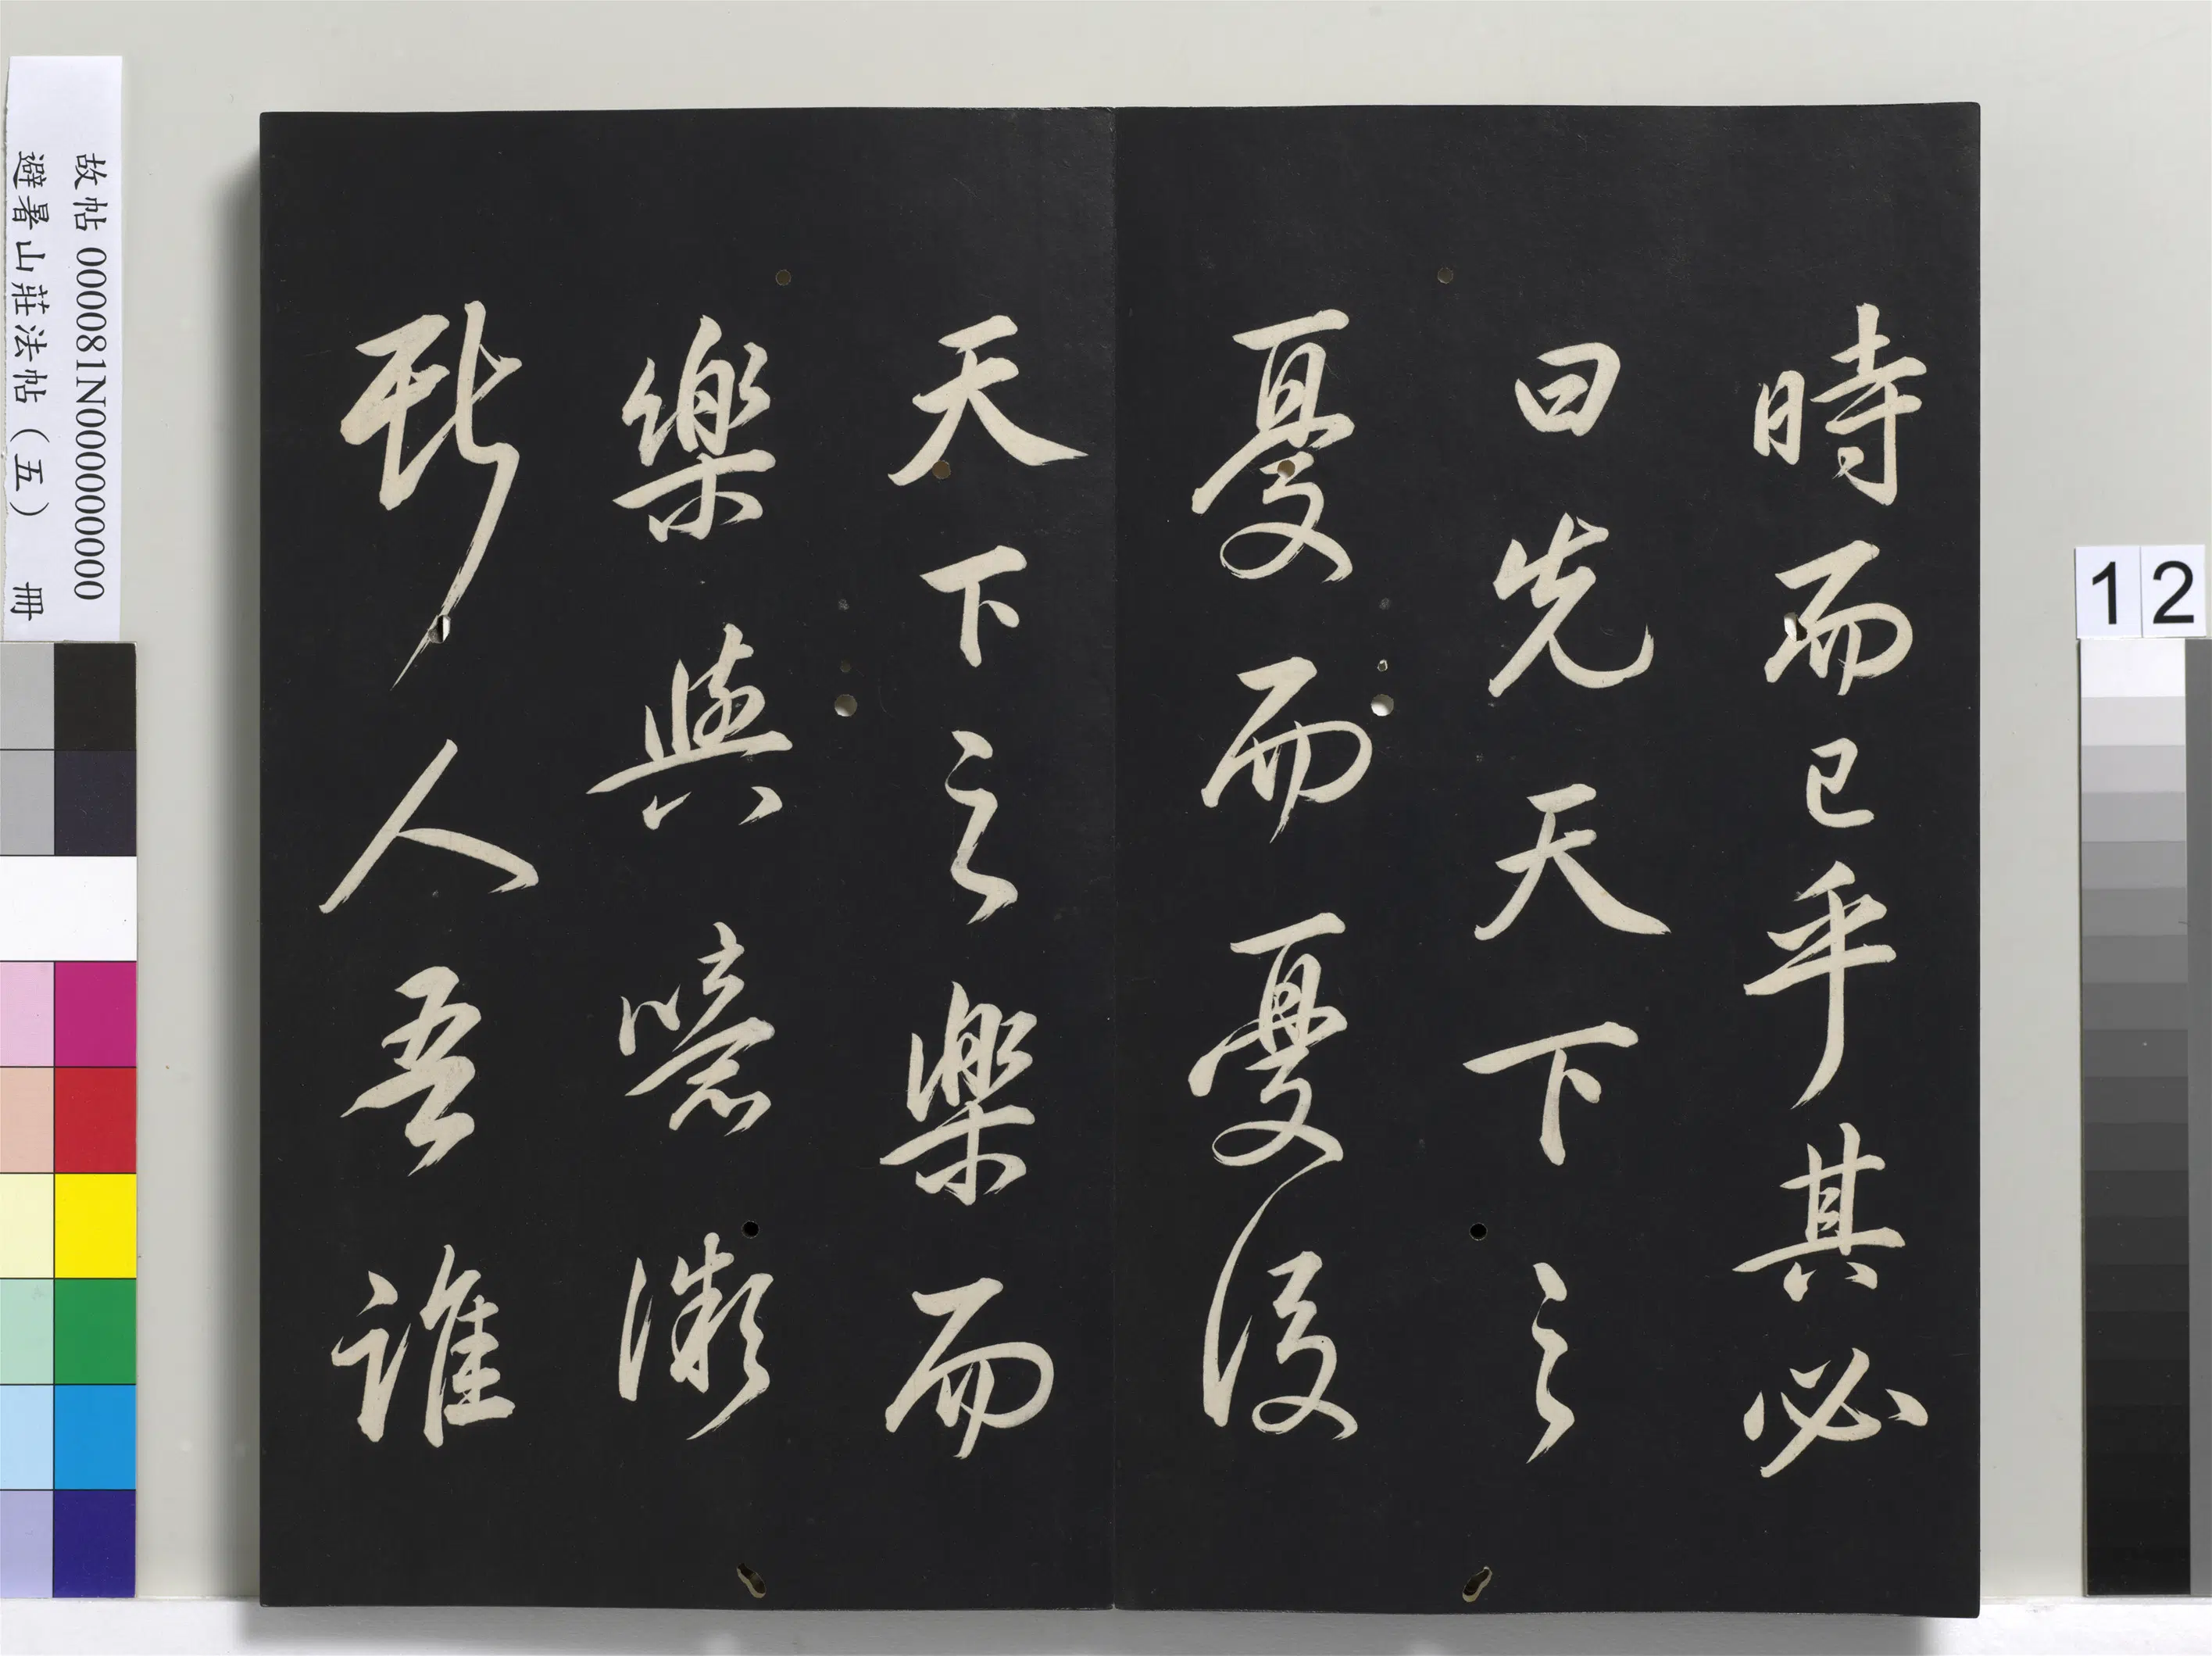 時而已乎其必
曰先天下之
憂而憂後
天下之樂而
樂與噫微
斯人吾誰
故帖 000081N000000000
避暑山莊法帖（五） 冊
12